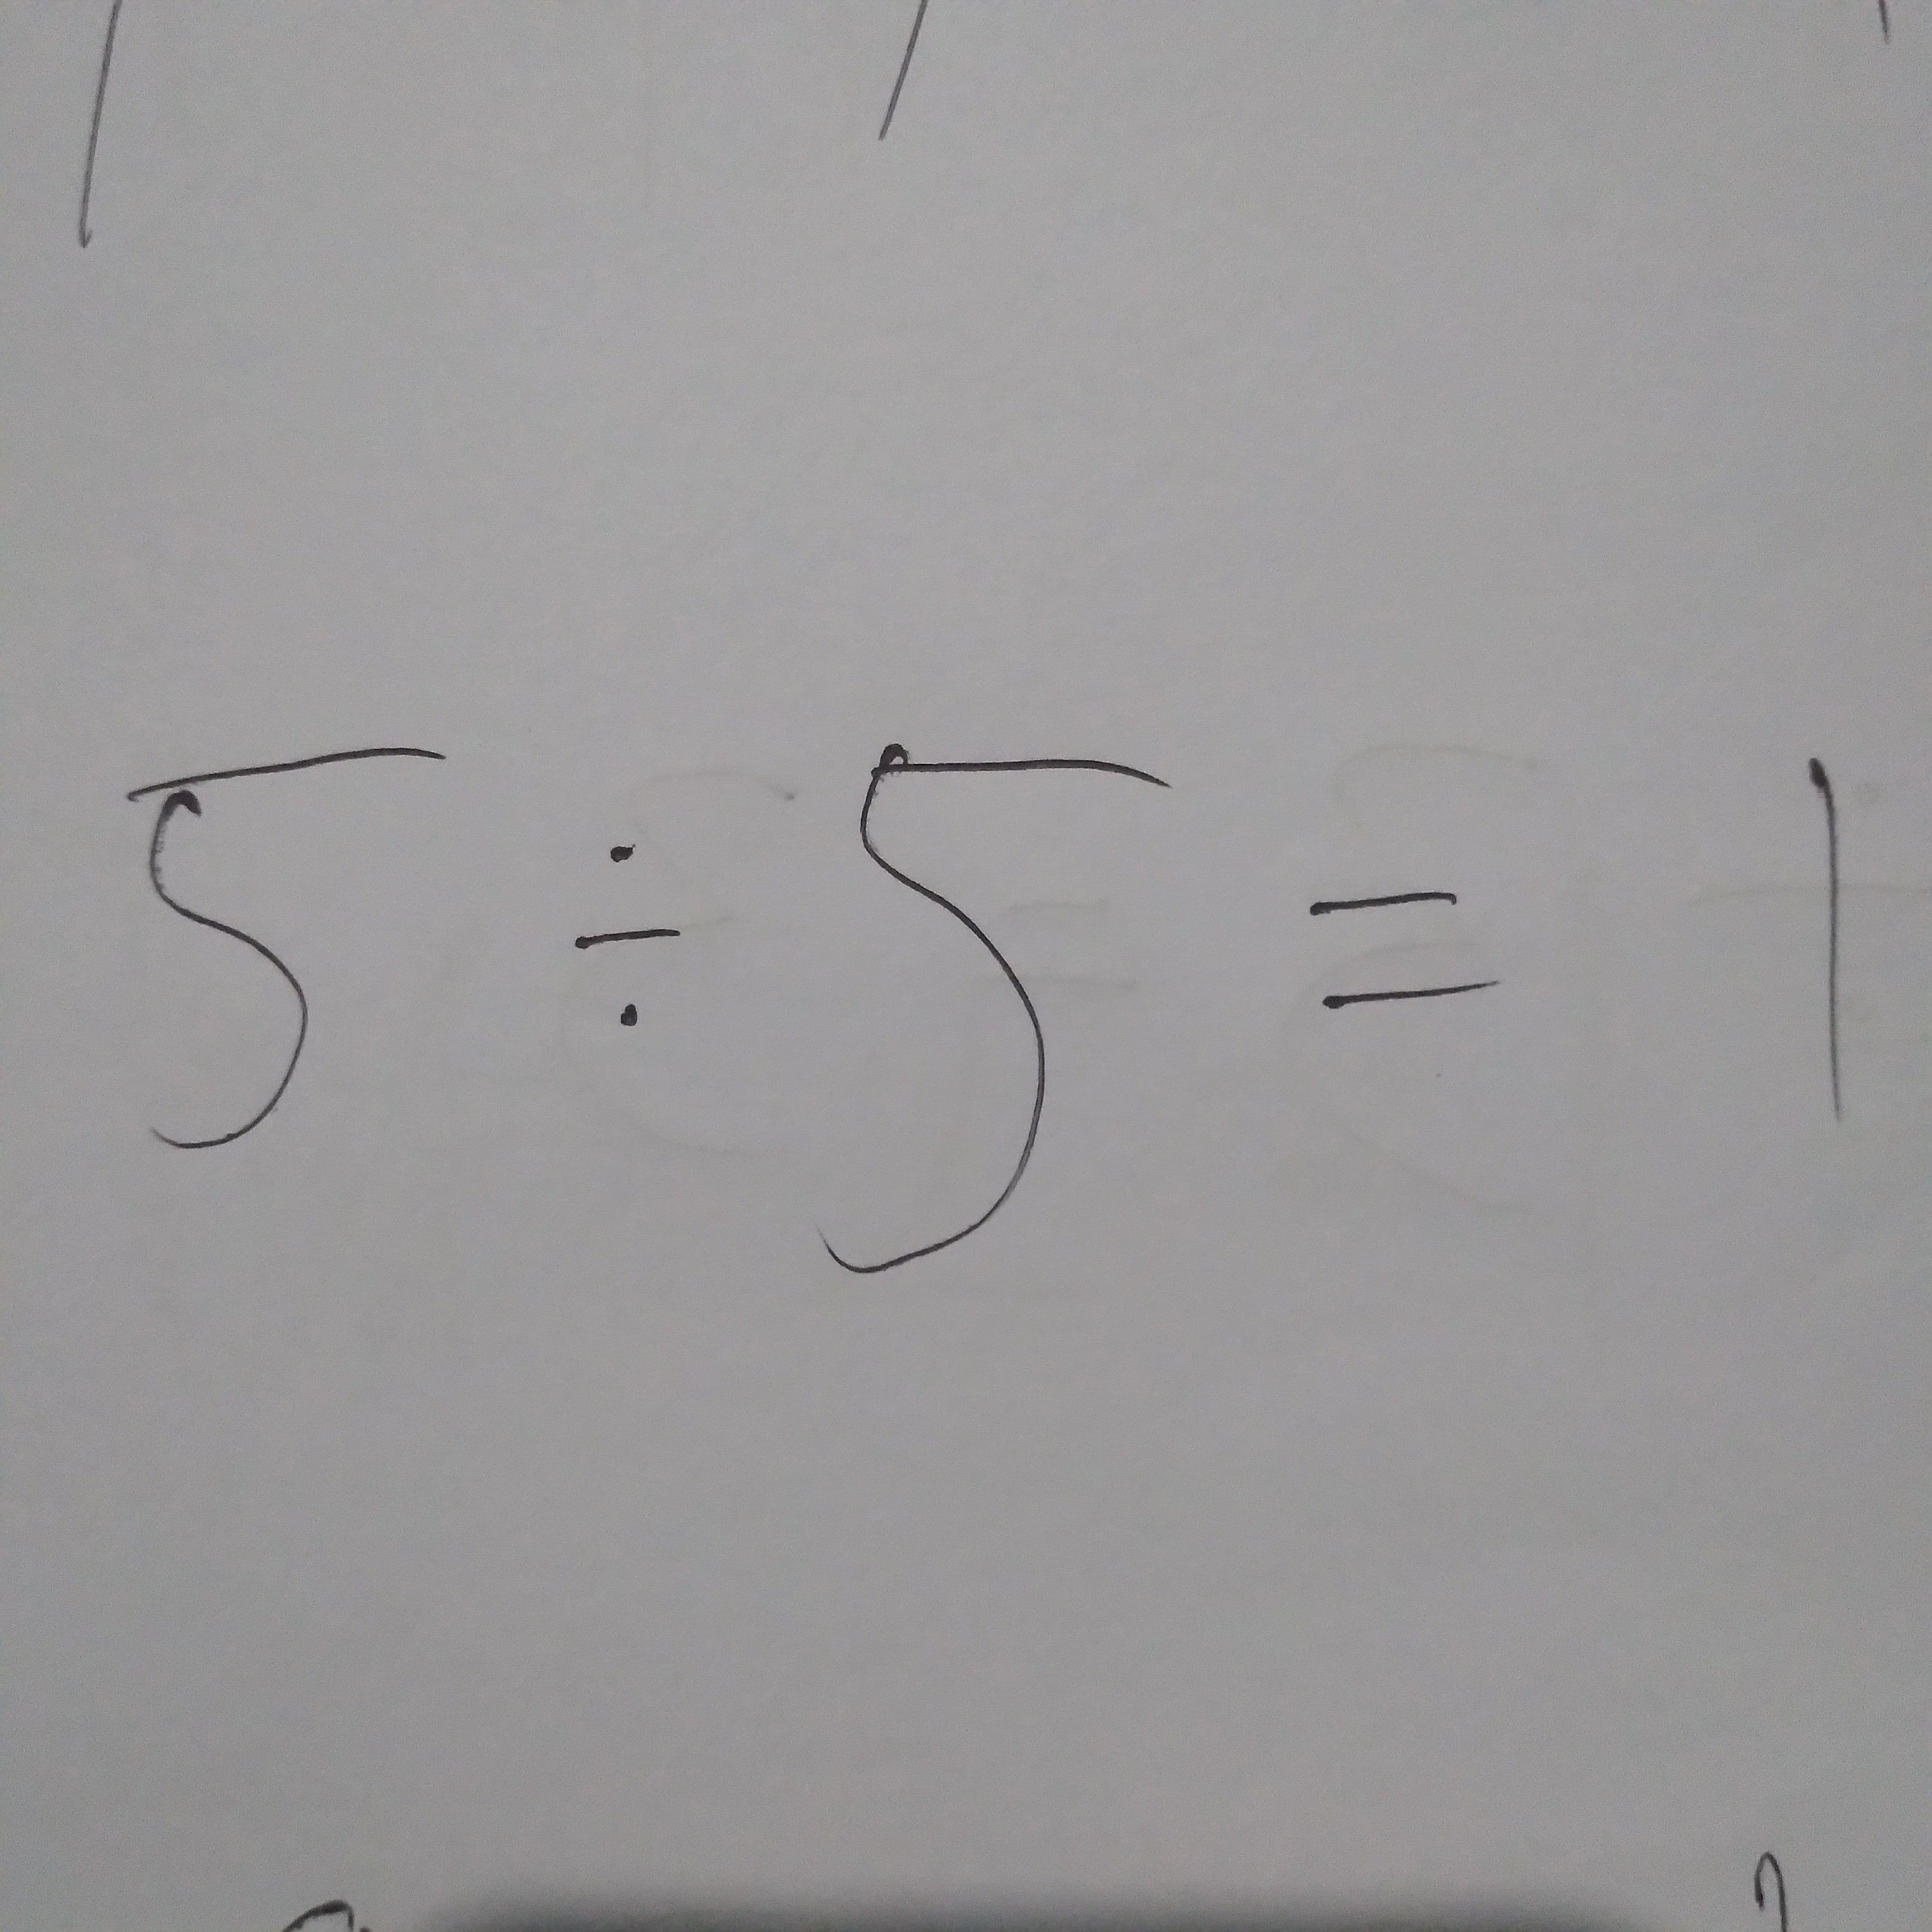 5 ÷ 5 = 1